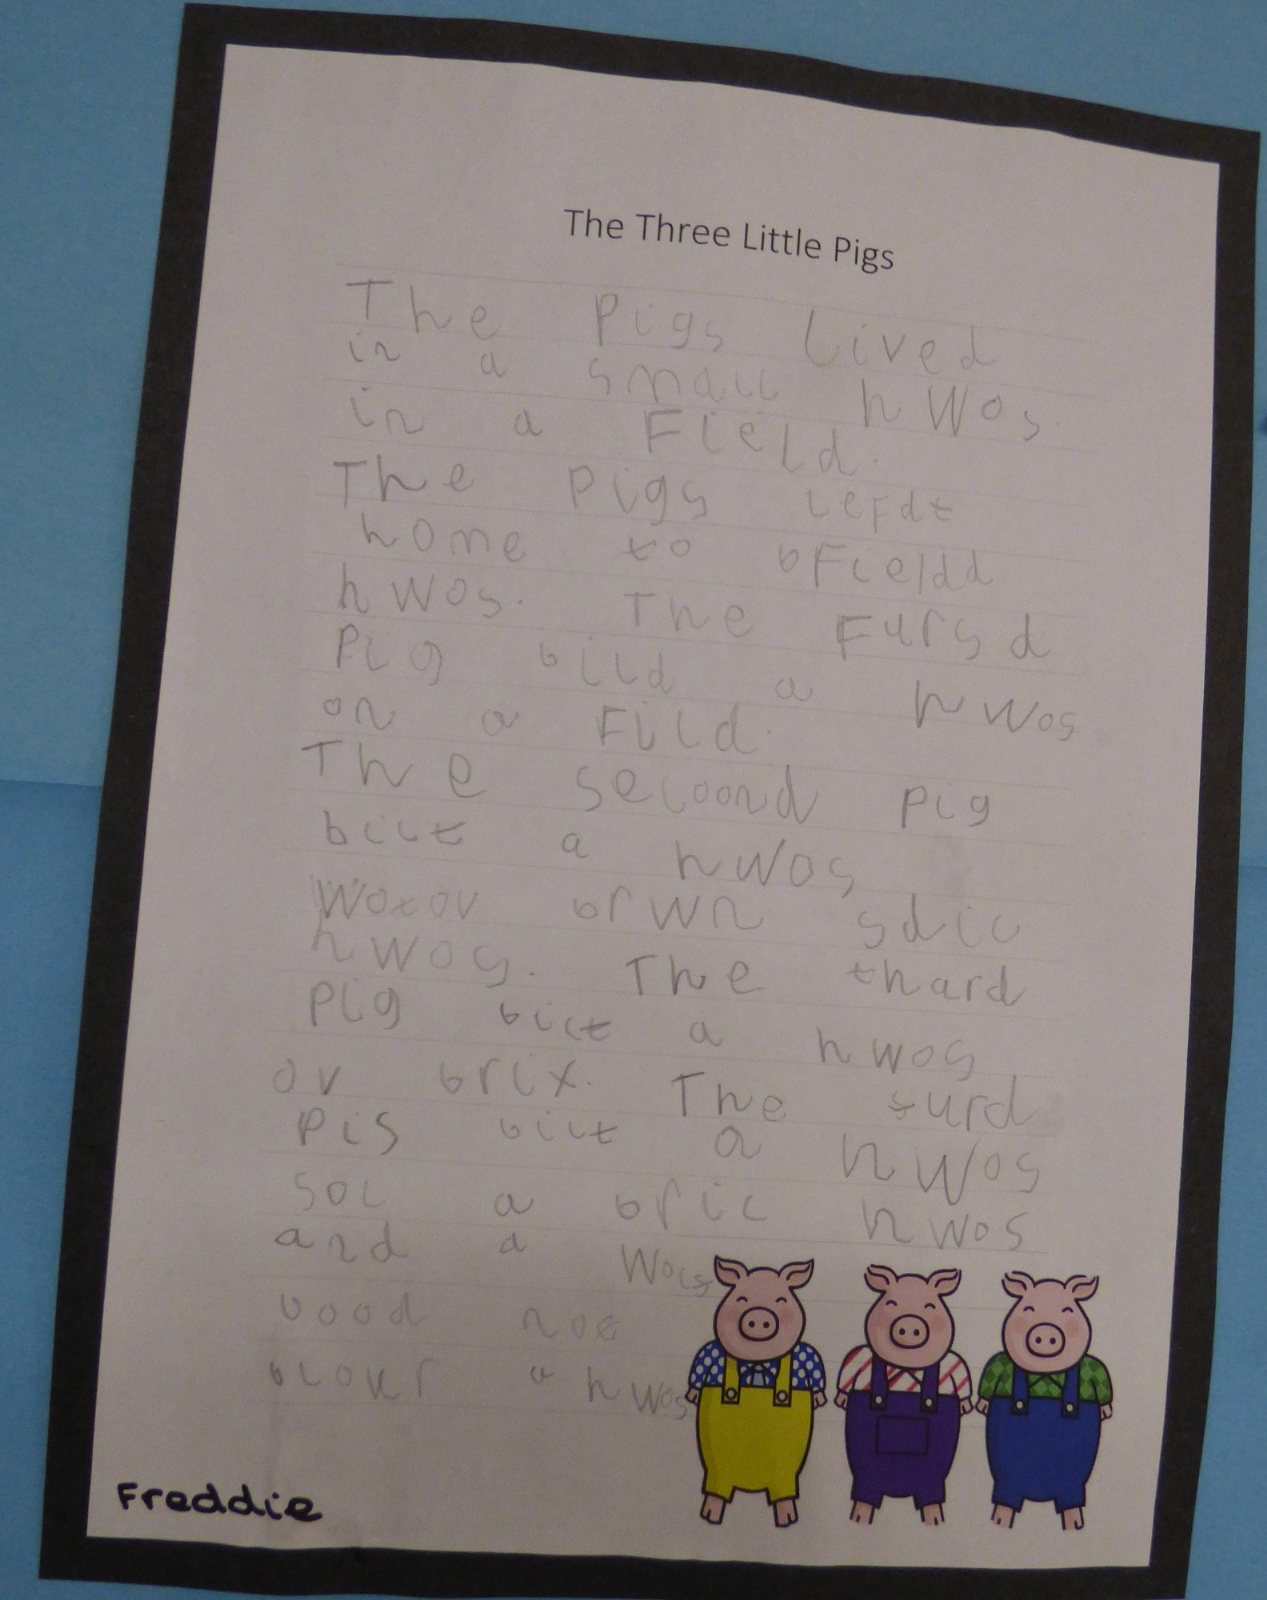 The Three Little Pigs
The Pigs Lived
in a small hwos.
in a Field.
The Pigs lefdt
home to bFieldd
hwos. The Fursd
Pig bild a hwos
on a Fild.
The secoond pig
bilt a hwos
Wotov brwn sdic
hwos. The thard
Pig bilt a hwos
ov brix. The surd
Pis bilt a hwos
Sol a bric hwos
and a Wols
vood not
blour a hwos
Freddie